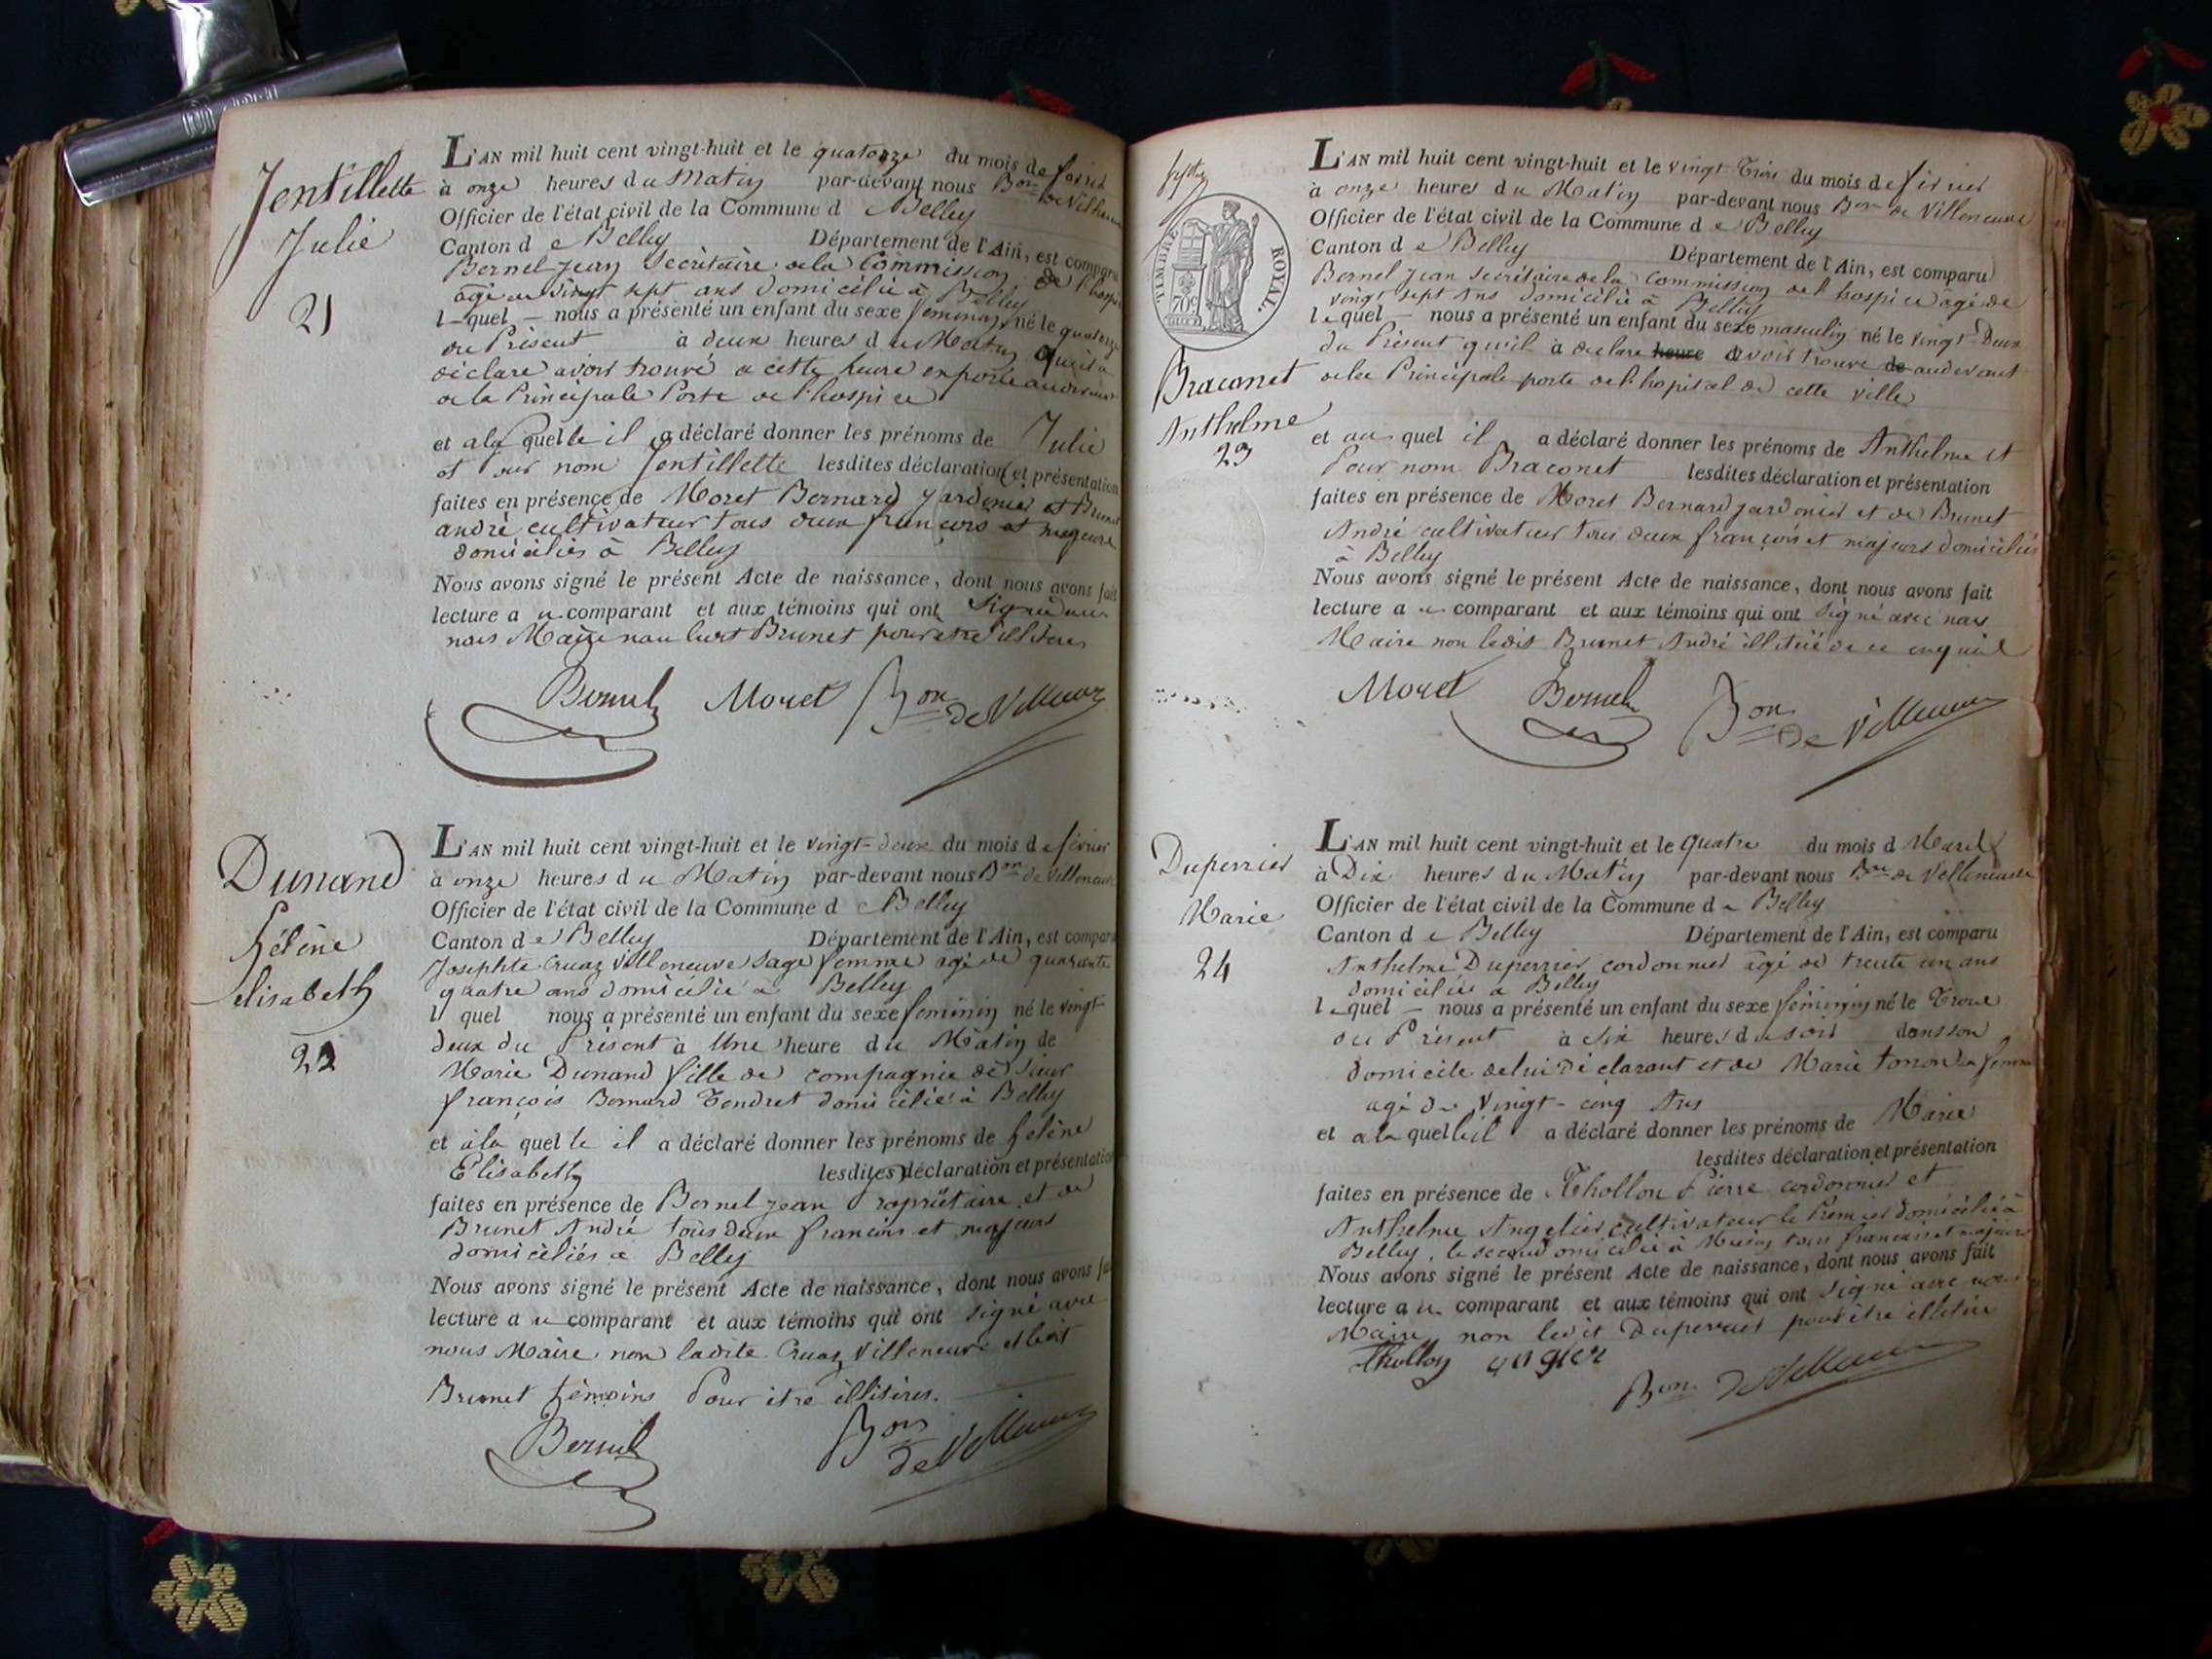 Jentillette
Julie
21
L'AN mil huit cent vingt-huit et le quatorze du mois de février
à onze heures du Matin par-devant nous Bon de Villeneuve
Officier de l'état civil de la Commune de Belley
Canton de Belley Département de l'Ain, est comparu
Bernel Jean Secrétaire de la Commission de l'hospice
âgé de vingt sept ans domicilié à Belley
lequel nous a présenté un enfant du sexe feminin né le quatorze
du Présent à deux heures du Matin qu'il a
déclaré avoir trouvé a cette heure exposée au devant
de la Principale Porte de l'hospice
et a la quelle il a déclaré donner les prénoms de Julie
et pour nom Jentillette lesdites déclaration et présentation
faites en présence de Moret Bernard jardinier et Brunet
andré cultivateur tous deux françois et majeurs
domiciliés à Belley
Nous avons signé le présent Acte de naissance, dont nous avons fait
lecture au comparant et aux témoins qui ont signé avec
nous Maire non Brunet pour etre illitéré
Bernel Moret Bon de Villeneuve
Dunand
hélène
elisabeth
22
L'AN mil huit cent vingt-huit et le vingt-deux du mois de février
à onze heures du Matin par-devant nous Bon de Villeneuve
Officier de l'état civil de la Commune de Belley
Canton de Belley Département de l'Ain, est comparu
Josephte Cruaz Villeneuve Sage femme agé de quarante
quatre ans domicilié a Belley
l quel nous a présenté un enfant du sexe feminin né le vingt
deux du Présent à Une heure du Matin de
Marie Dunand fille de compagnie de Sieur
françois Bernard Tendret domicilié à Belley
et à la quelle il a déclaré donner les prénoms de hélène
Elisabeth lesdites déclaration et présentation
faites en présence de Bernel Jean Propriétaire et de
Brunet André tous deux françois et majeurs
domiciliés a Belley
Nous avons signé le présent Acte de naissance, dont nous avons fait
lecture au comparant et aux témoins qui ont signé avec
nous Maire non ladite Cruaz Villeneuve et
Brunet témoins Pour être illitérés.
Bernel Bon de Villeneuve
TIMBRE ROYAL.
70c
Braconet
Anthelme
23
L'AN mil huit cent vingt-huit et le vingt Trois du mois de février
à onze heures du Matin par-devant nous Bon de Villeneuve
Officier de l'état civil de la Commune de Belley
Canton de Belley Département de l'Ain, est comparu
Bernel Jean Secrétaire de la Commission de l'hospice agé de
vingt sept Ans domicilié à Belley
lequel nous a présenté un enfant du sexe masculin né le vingt Deux
du Présent qu'il à déclaré heure avoir trouvé de au devant
de la Principale porte de l'hopital de cette ville
et au quel il a déclaré donner les prénoms de Anthelme et
Pour nom Braconet lesdites déclaration et présentation
faites en présence de Moret Bernard jardinier et de Brunet
André cultivateur tous deux françois et majeurs domiciliés
à Belley
Nous avons signé le présent Acte de naissance, dont nous avons fait
lecture au comparant et aux témoins qui ont signé avec nous
Maire non ledit Brunet André illitéré de ce enquis
Moret Bernel Bon de Villeneuve
Duperrier
Marie
24
L'AN mil huit cent vingt-huit et le quatre du mois d Mars
à Dix heures du Matin par-devant nous Bon de Villeneuve
Officier de l'état civil de la Commune de Belley
Canton de Belley Département de l'Ain, est comparu
Anthelme Duperrier cordonnier âgé de trente un ans
domicilié a Belley
lequel nous a présenté un enfant du sexe féminin né le Trois
du Présent à Six heures du soir dans son
domicile de lui Déclarant et de Marie sa femme
agé de Vingt-cinq Ans
et a la quelle il a déclaré donner les prénoms de Marie
lesdites déclaration et présentation
faites en présence de Thollon Pierre cordonnier et
Anthelme Angelier cultivateur le Premier domicilié à
Belley, le second domicilié à tous françois et majeurs
Nous avons signé le présent Acte de naissance, dont nous avons fait
lecture au comparant et aux témoins qui ont signé avec nous
Maire non ledit Duperrier pour être illitéré
Thollon Bon de Villeneuve